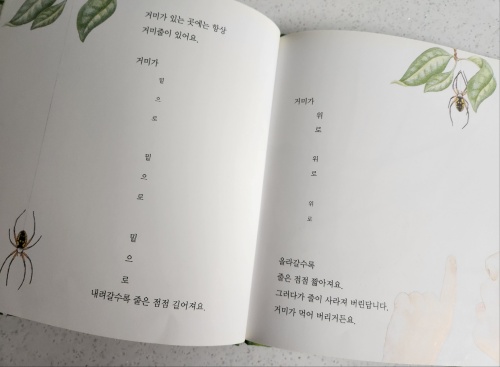 거미가 있는 곳에는 항상
거미줄이 있어요.
거미가
밑
으
로
밑
으
로
밑
으
로
내려갈수록 줄은 점점 길어져요.
거미가
위
로
위
로
위
로
올라갈수록
줄은 점점 짧아져요.
그러다가 줄이 사라져 버린답니다.
거미가 먹어 버리거든요.